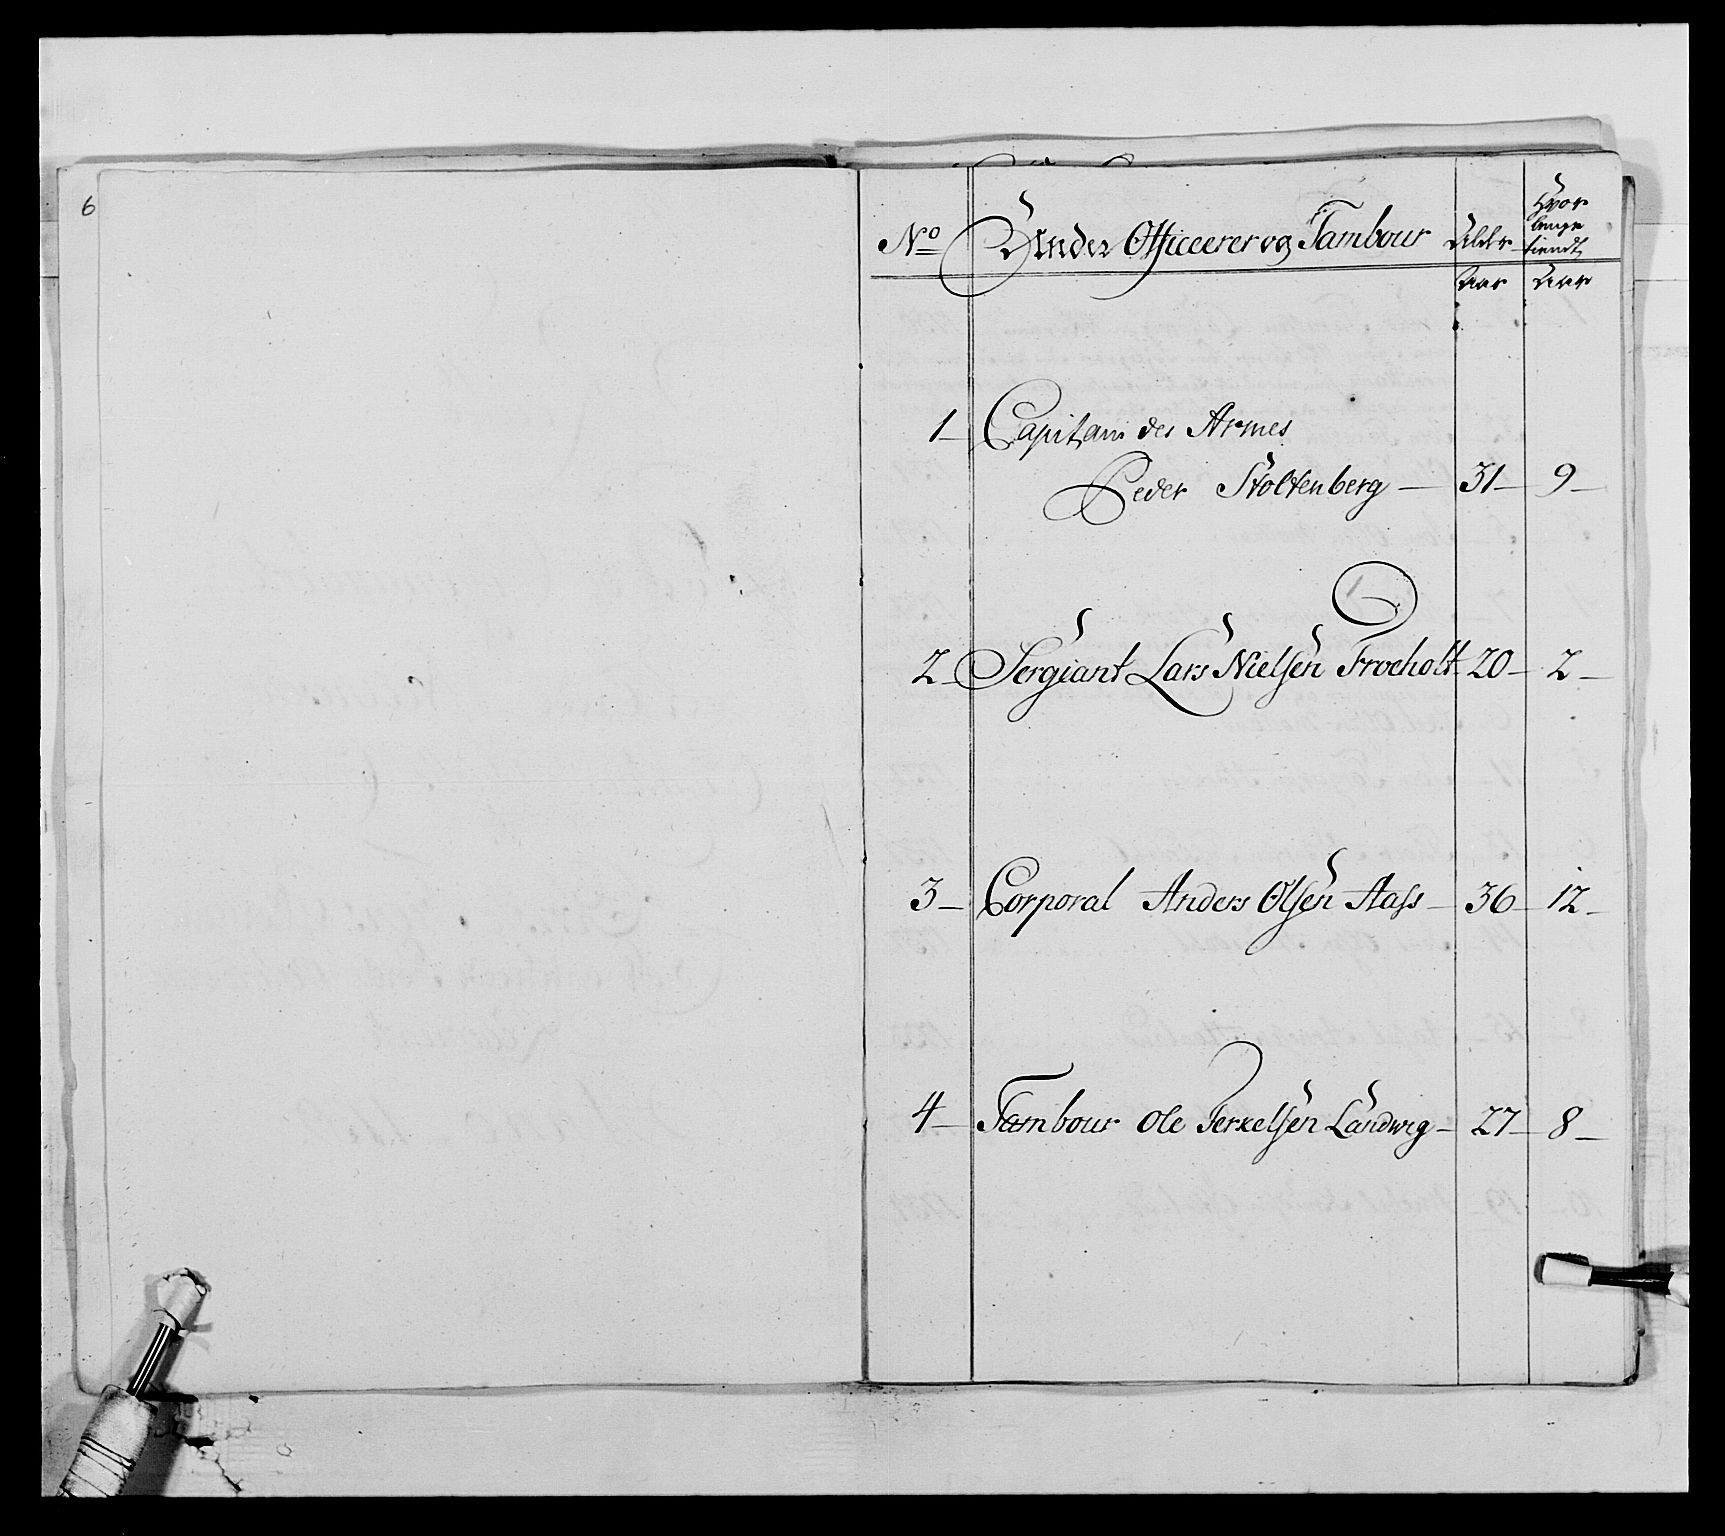 6
No Under Officeerer og Tambour Alder Hvor
lenge
tiendt
Aar Aar
1 Capitain des Armes
Peder Stoltenberg 31 9
2 Sergiant Lars Nielsen Froeholt 20 2
3 Corporal Anders Olsen Aass 36 12
4 Tambour Ole Terkelsen Landwig 27 8